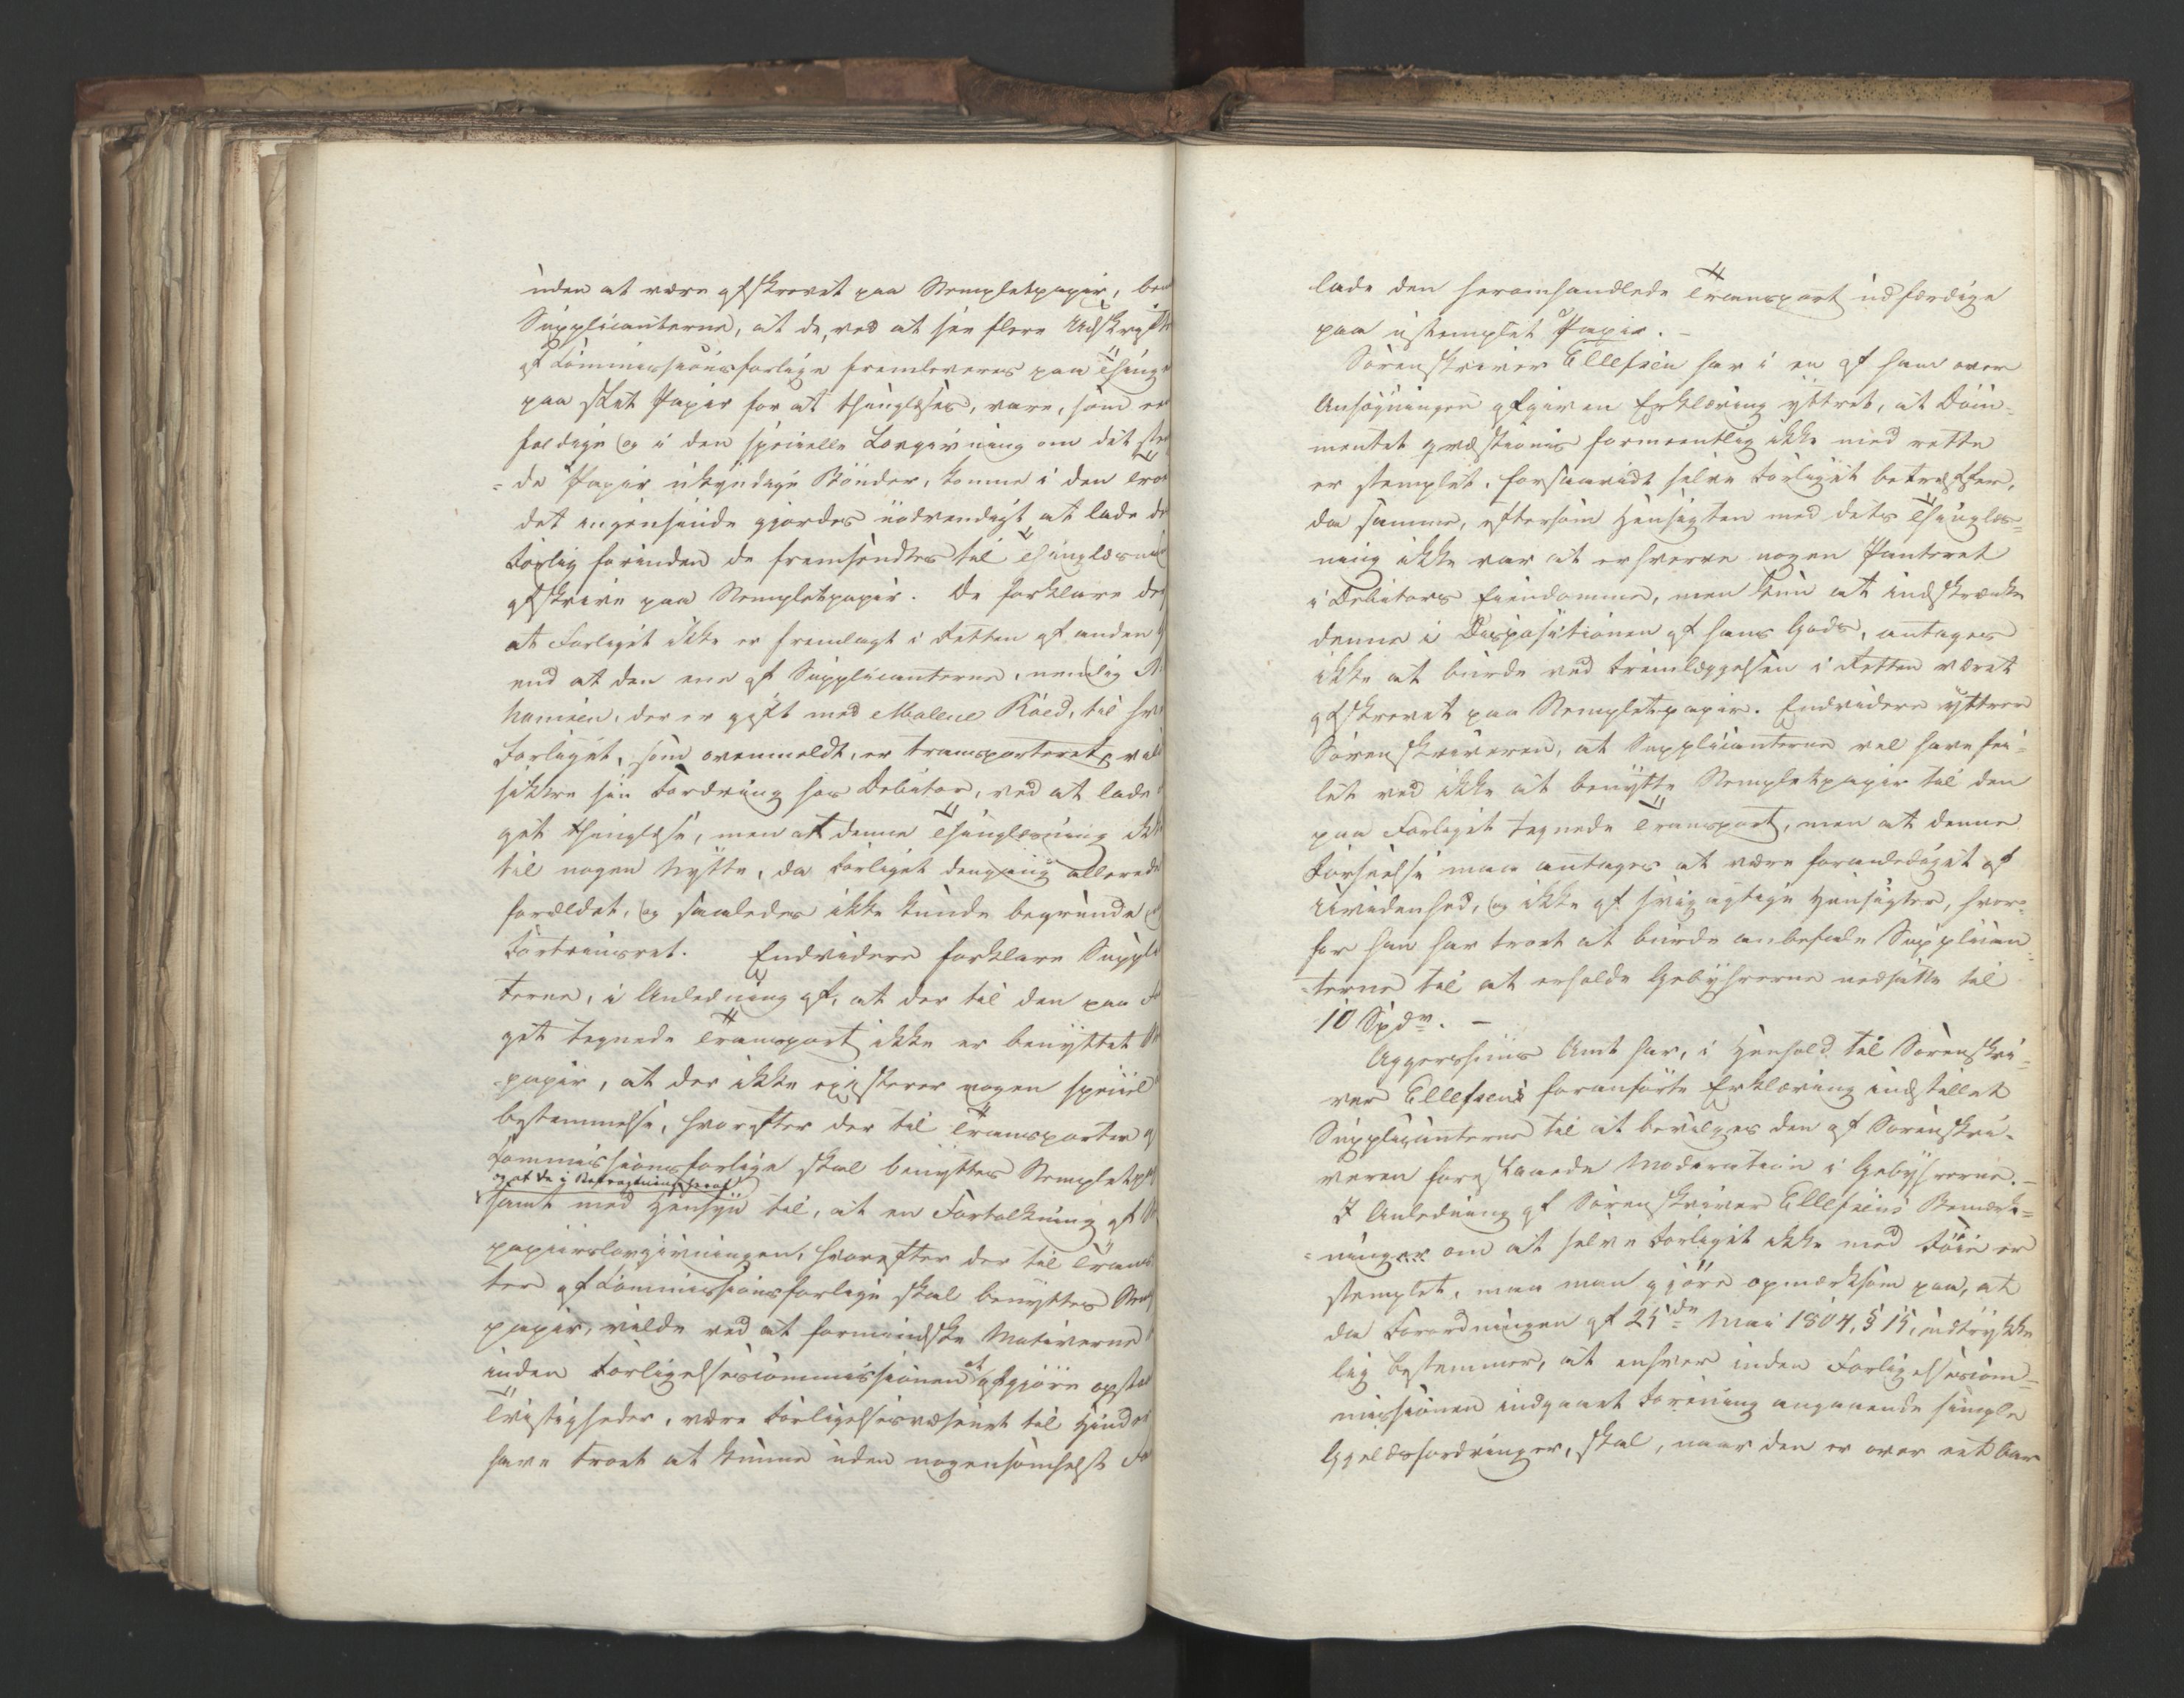 uden at være afskrevet paa Stempletpapir, be
Supplicanterne, at de, ved at see flere Udskrifte
af Commissionsforlige fremleveres paa Thinge
paa slet Papir for at thinglæses, vare, som een
foldige og i den specielle Lovgivning om det stem
de Papir ukyndige Bønder, komne i den Tro
det ingensinde gjordes nødvendigt at lade de
Forlig forinden de fremsendtes til Thinglæsni
afskrive paa Stempletpapir. De forklare der
at Forliget ikke er fremlagt i Retten af anden
end at den ene af Supplicanterne, nemlig
hansen, der er gift med Malene Roed, til hv
Forliget, som ovenmeldt, er transporteret, vil
sikkre sin Fordring hos Debitor, ved at lade
get thinglæse, men at denne Thinglæsning ikk
til nogen Nytte, da Forliget dengang allerede
forældet, og saaledes ikke kunde begrunde
Fortrinsret. Endvidere forklare Suppli
terne, i Anledning af, at der til den paa Fo
get tegnede Transport ikke er benyttet St
papir, at der ikke existerer nogen speciel
bestemmelse, hvorefter der til Transporter
Commissionsforlige skal benyttes Stempletp
og at de i Betragtning heraf
samt med Hensyn til, at en Fortolkning af St
papiirslovgivningen, hvorefter der til Trans
ter af Commissionsforlige skal benyttes Stem
papir, vilde ved at formindske Motiverne
inden Forligelsescommissionen at afgjøre opsta
Tvistigheder, være Forligelsesvæsenet til Hinder
have troet at kunne uden nogensomhelst Fo
lade den heromhandlede Transport udfærdige
paa ustemplet Papir. –
Sorenskriver Ellefsen har i en af ham over
Ansøgningen afgiven Erklæring yttret, at Docu-
mentet qvæstionis formeentlig ikke med rette
er stemplet, forsaavidt selve Forliget betræffer,
da samme, eftersom Hensigten med dets Thinglæs-
ning ikke var at erhverve nogen Panteret
i Debitors Eiendomme, men kun at indskrænke
denne i Dispositionen af hans Gods, antages
ikke at burde ved Fremlæggelsen i Retten været
afskrevet paa Stempletpapir. Endvidere yttrer
Sorenskriveren, at Supplicanterne vel have fei-
let ved ikke at benytte Stempletpapir til den
paa Forliget tegnede Transport, men at denne
Forseelse maa antages at være foranlediget af
Uvidenhed, og ikke af svigagtige Hensigter, hvor-
for han har troet at burde anbefale Supplican-
terne til at erholde Gebyhrerne nedsatte til
10 Spdr. –
Aggershuus Amt har, i Henhold til Sorenskri-
ver Ellefsens foranførte Erklæring indstillet
Supplicanterne til at bevilges den af Sorenskri-
veren foreslaaede Moderation i Gebyhrerne. –
I Anledning af Sorenskriver Ellefsens Bemærk-
ninger om at selve Forliget ikke med Føie er
stemplet, maa man gjøre opmærksom paa, at
da Forordningen af 25de Mai 1804, § 15, udtrykke
lig bestemmer, at enhver inden Forligelsescom-
missionen indgaaet Forening angaaende simple
Gjeldsfordringer, skal, naar den er over eet Aar